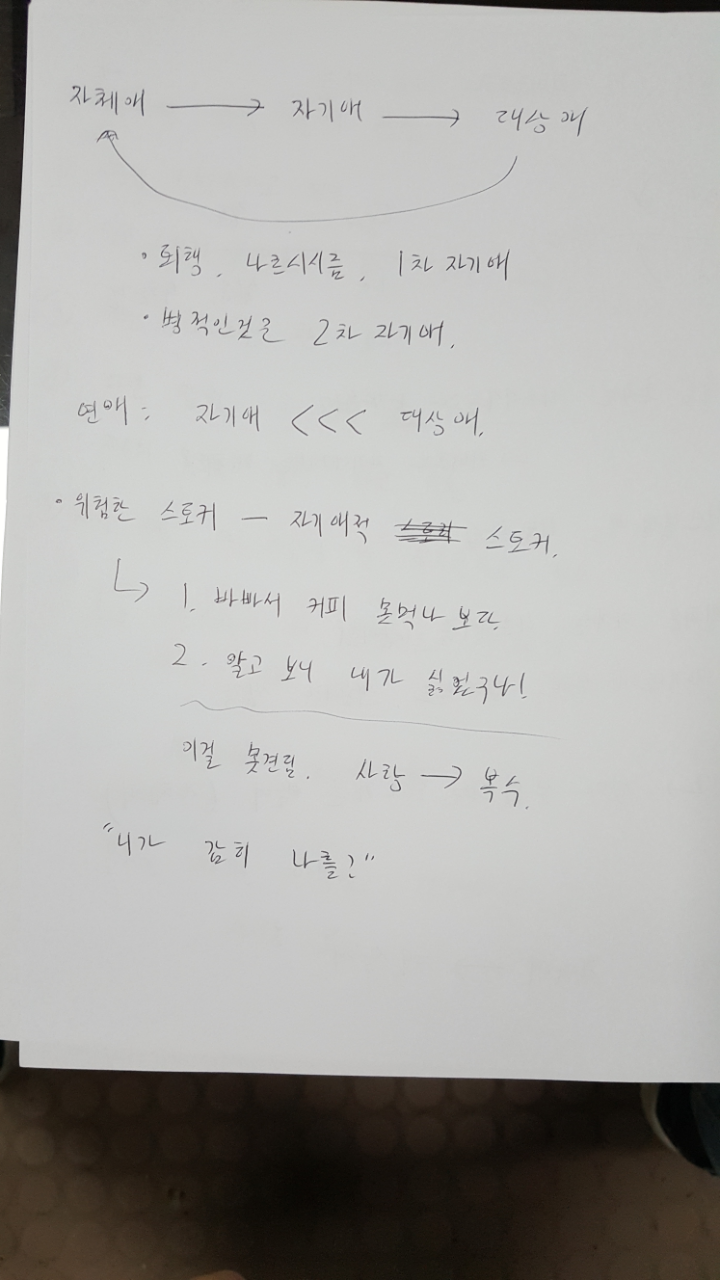 자체애 → 자기애 → 대상애
· 퇴행. 나르시시즘. 1차 자기애
· 병적인것은 2차 자기애.
연애 : 자기애 <<< 대상애.
· 위험한 스토커 — 자기애적 스토커.
↳ 1. 바빠서 커피 못먹나 보다.
2. 알고 보니 내가 싫었구나!
이걸 못견딤. 사랑 → 복수.
"니가 감히 나를?"